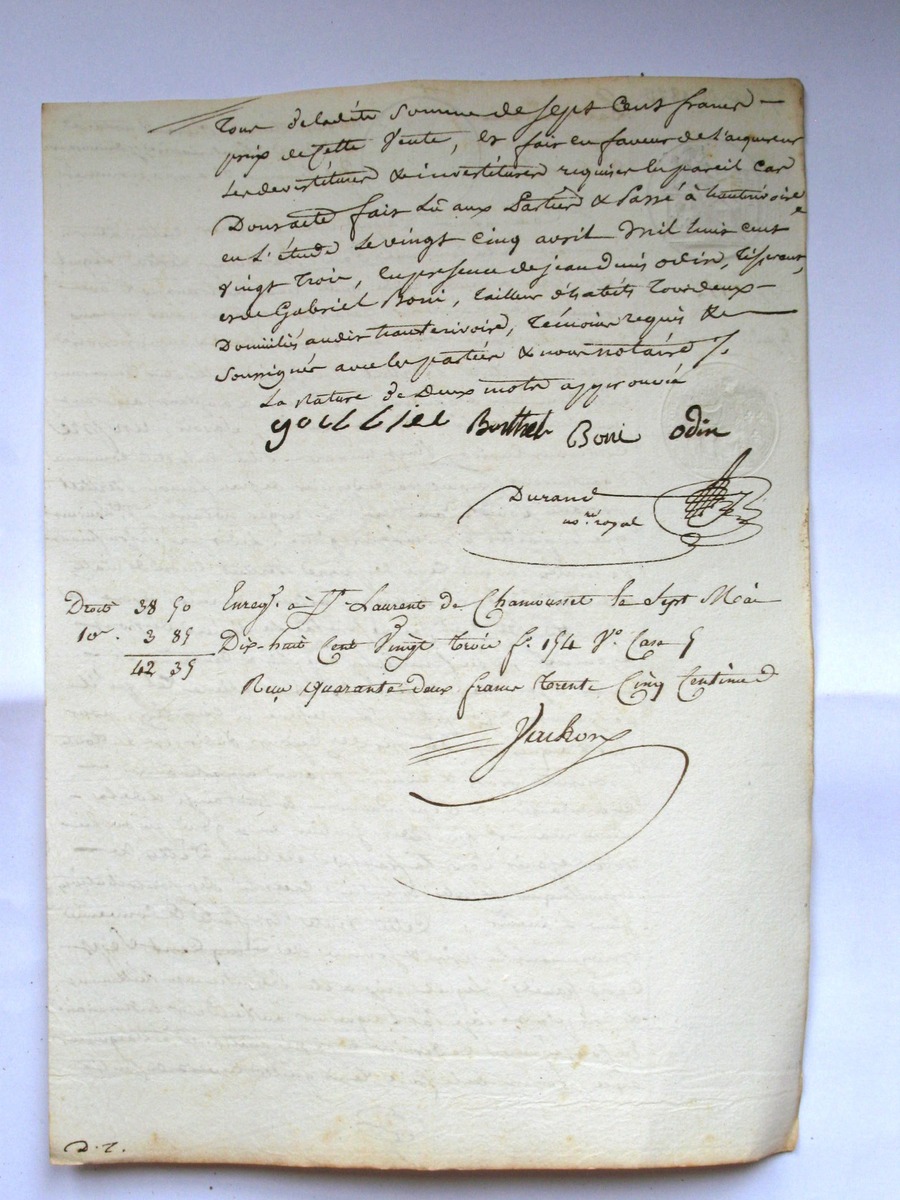 Tour de ladite somme de sept cent francs —
prix de cette vente, et fait en faveur de l'acquereur
les devestitures & investitures requises en pareil cas
Dont acte fait lu aux parties & passé à hauterivoire
en l'étude le vingt cinq avril mil huit cent
vingt trois, en présence de jean denis odin, tisserant,
et de Gabriel Boni, tailleur d'habits tous deux —
Domiciliés audit hauterivoire, témoins requis &
soussignés avec les parties & nous notaire /.
La rature de deux mots approuvée
gouttier Berthet Boni odin
Durand
no.re royal
Droits 38 50 Enreg.é à S.t Laurent de Chamousset le sept Mai
10.e 3 85 Dix-huit Cent Vingt trois f.o 154 V.o Case 5
42 35 Reçu quarante deux francs trente cinq centimes
D. 2.